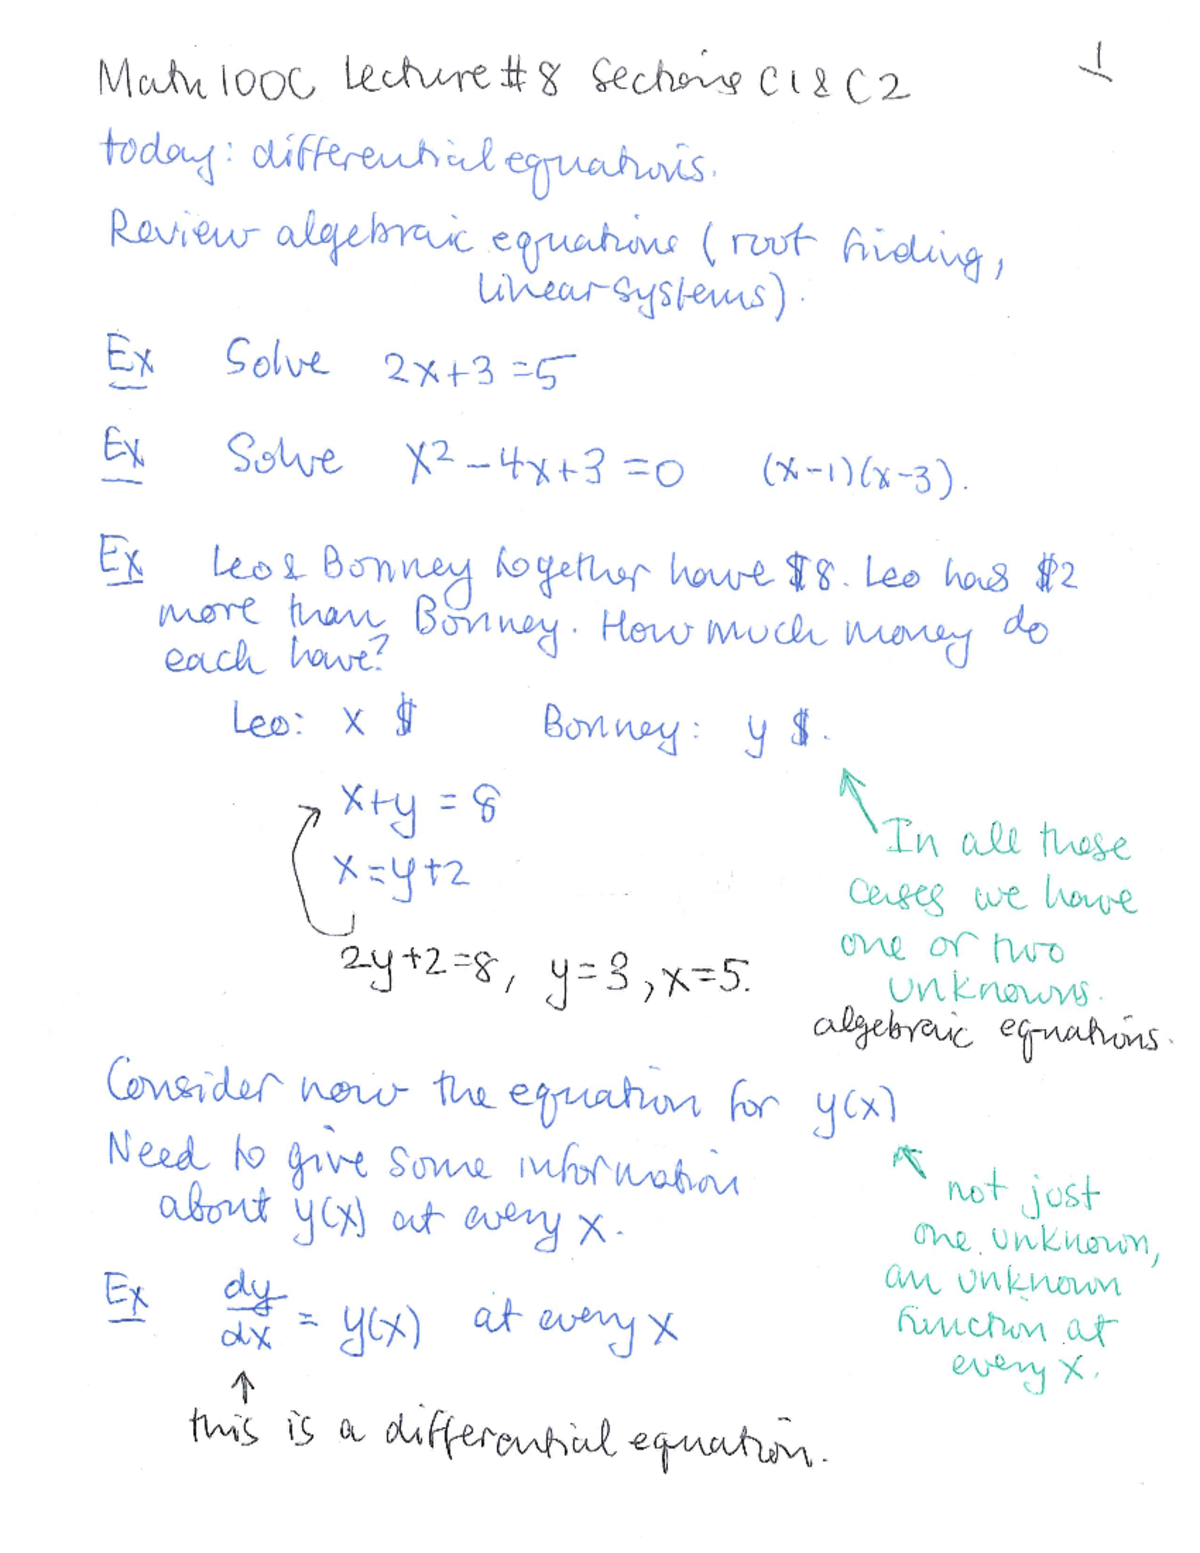 Math 100C Lecture #8 Sections C1 & C2
1
today: differential equations.
Review algebraic equations (root finding,
linear systems).
Ex Solve 2x+3=5
Ex Solve x²-4x+3=0 (x-1)(x-3).
Ex Leo & Bonney together have $8. Leo has $2
more than Bonney. How much money do
each have?
Leo: x $ Bonney: y $.
x+y=8
x=y+2
2y+2=8, y=3, x=5.
In all these
cases we have
one or two
unknowns.
algebraic equations.
Consider now the equation for y(x)
Need to give some information
about y(x) at every x.
not just
one unknown,
an unknown
function at
every x.
Ex dy/dx = y(x) at every x
this is a differential equation.